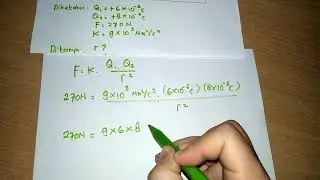 Diketahui: Q₁ = +6×10⁻⁶C
Q₂ = +8×10⁻⁶C
F = 270N
K = 9×10⁹ Nm²/c²
Ditanya: r?
F = K. Q₁. Q₂ / r²
270N = 9×10⁹ Nm²/c². (6×10⁻⁶c) (8×10⁻⁶c) / r²
270N = 9×6×8